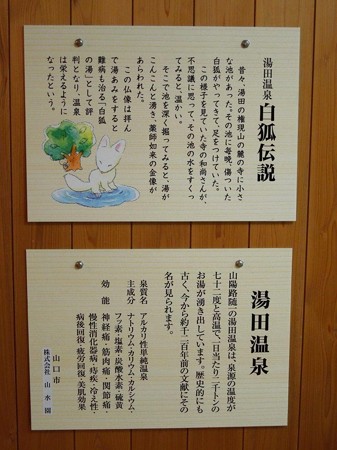 湯田温泉
白狐伝説
昔々、湯田の権現山の麓の寺に小さ
な池があった。その池に毎晩、傷ついた
白狐がやってきて、足をつけていた。
この様子を見ていた寺の和尚さんが、
不思議に思って、その池の水をすくっ
てみると、温かい。
そこで池を深く掘ってみると、湯が
こんこんと湧き、薬師如来の金像が
あらわれた。
この仏像は拝ん
で湯あみをすると
難病も治る「白狐
の湯」として評
判となり、温泉
は栄えるように
なったという。
湯田温泉
山陽路随一の湯田温泉は、泉源の温度が
七十二度と高温で、一日当たり二千トンの
お湯が湧き出しています。歴史的にも
古く、今から約千二百年前の文献にその
名が見られます。
泉質名 アルカリ性単純温泉
主成分 ナトリウム・カリウム・カルシウム・
フッ素・塩素・炭酸水素・硫黄
効能 神経痛・筋肉痛・関節痛・
慢性消化器病・痔疾・冷え性・
病後回復・疲労回復・美肌効果
山口市
株式会社 山水園